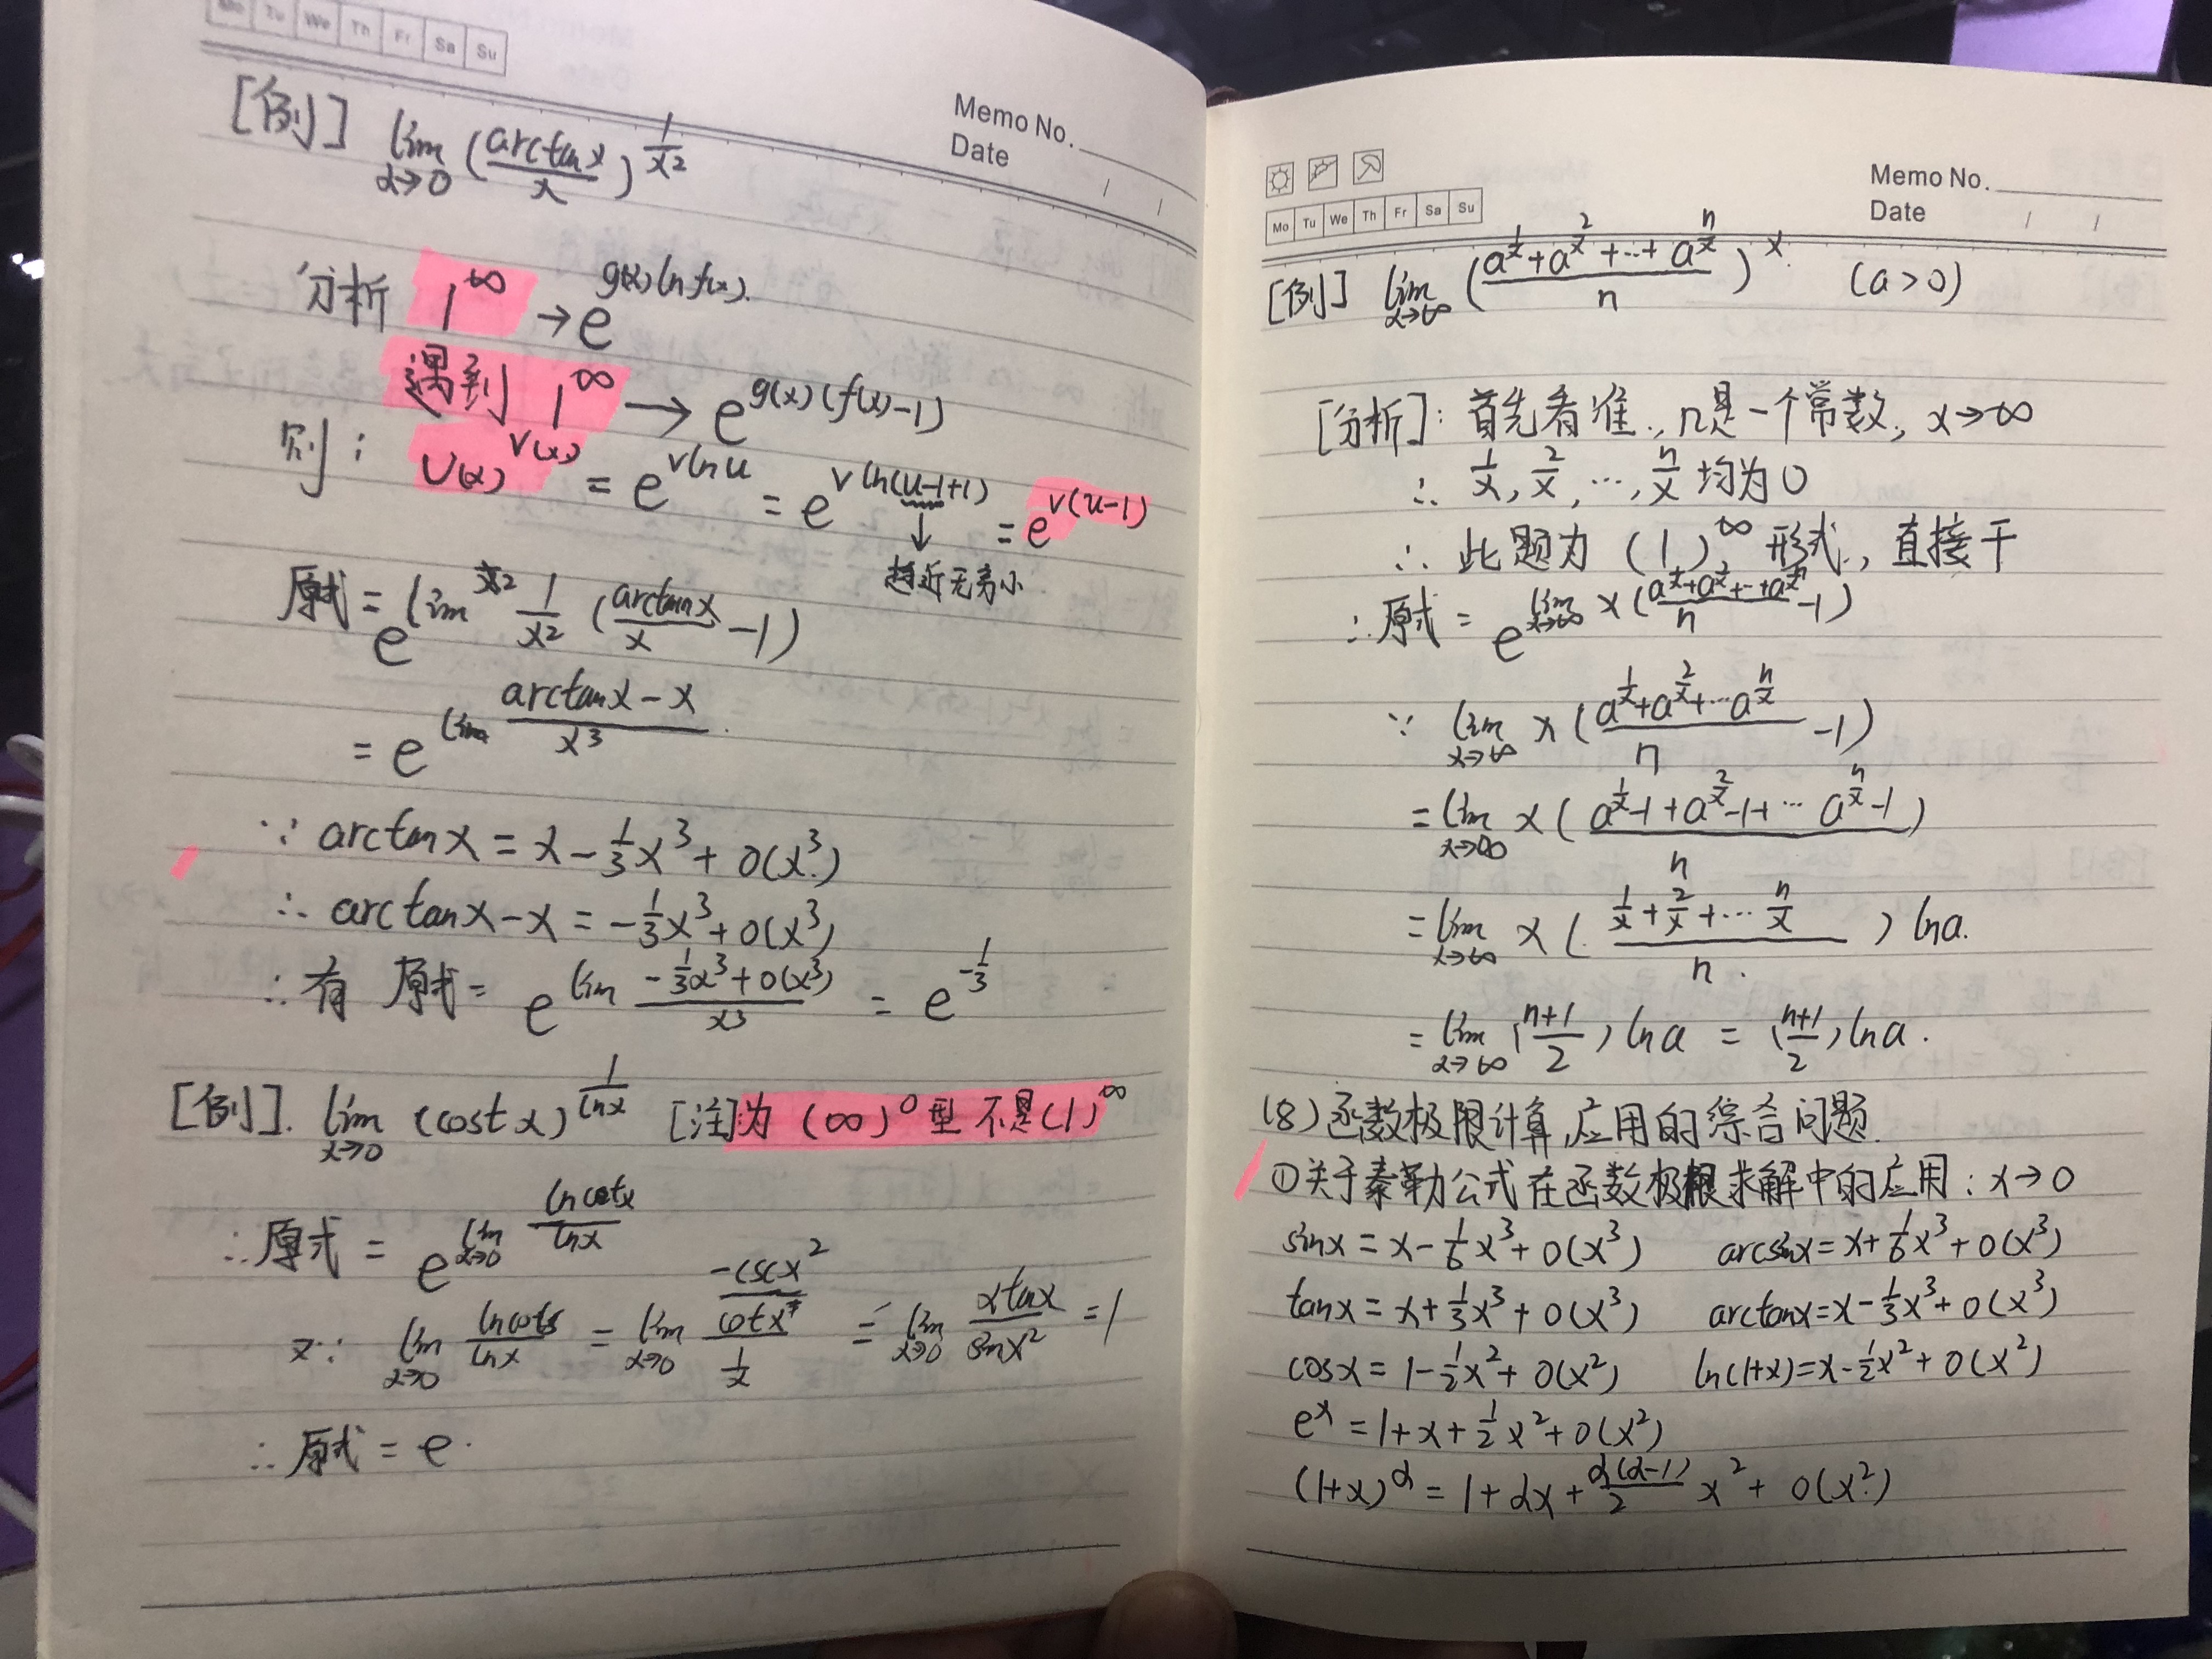 Mo Tu We Th Fr Sa Su
Memo No.
Date / /
[例] lim x→0 (arctanx/x)^(1/x²)
分析 1^∞ → e^(g(x)lnf(x))
遇到 1^∞ → e^(g(x)(f(x)-1))
则: U(x)^V(x) = e^(vlnu) = e^(vln(u-1+1)) = e^(v(u-1))
↓
趋近无穷小
原式 = e^(lim 1/x² (arctanx/x -1))
= e^(lim (arctanx-x)/x³)
∵ arctanx = x - 1/3 x³ + o(x³)
∴ arctanx-x = -1/3 x³ + o(x³)
∴ 有 原式 = e^(lim (-1/3 x³+o(x³))/x³) = e^(-1/3)
[例]. lim x→0 (costx)^(1/lnx) [注]为 (∞)^0 型 不是(1)^∞
∴ 原式 = e^(lim x→0 lncotx/lnx)
又∵ lim x→0 lncotx/lnx = lim x→0 (-cscx²/cotx)/(1/x) = lim x→0 xtanx/sinx² = 1
∴ 原式 = e.
Memo No.
Date / /
Mo Tu We Th Fr Sa Su
[例] lim x→∞ ((a^(1/x)+a^(2/x)+…+a^(n/x))/n)^x. (a>0)
[分析]: 首先看准, n是一个常数, x→∞
∴ 1/x, 2/x, …, n/x 均为0
∴ 此题为 (1)^∞ 形式, 直接干
∴ 原式 = e^(lim x→∞ x((a^(1/x)+a^(2/x)+…+a^(n/x))/n -1))
∵ lim x→∞ x((a^(1/x)+a^(2/x)+…a^(n/x))/n -1)
= lim x→∞ x((a^(1/x)-1+a^(2/x)-1+…a^(n/x)-1)/n)
= lim x→∞ x((1/x+2/x+…n/x)/n) lna.
= lim x→∞ ((n+1)/2) lna = ((n+1)/2) lna.
(8) 函数极限计算,应用的综合问题.
①关于泰勒公式在函数极限求解中的应用: x→0
sinx = x - 1/6 x³ + o(x³) arcsinx = x + 1/6 x³ + o(x³)
tanx = x + 1/3 x³ + o(x³) arctanx = x - 1/3 x³ + o(x³)
cosx = 1 - 1/2 x² + o(x²) ln(1+x) = x - 1/2 x² + o(x²)
e^x = 1 + x + 1/2 x² + o(x²)
(1+x)^α = 1 + αx + α(α-1)/2 x² + o(x²)